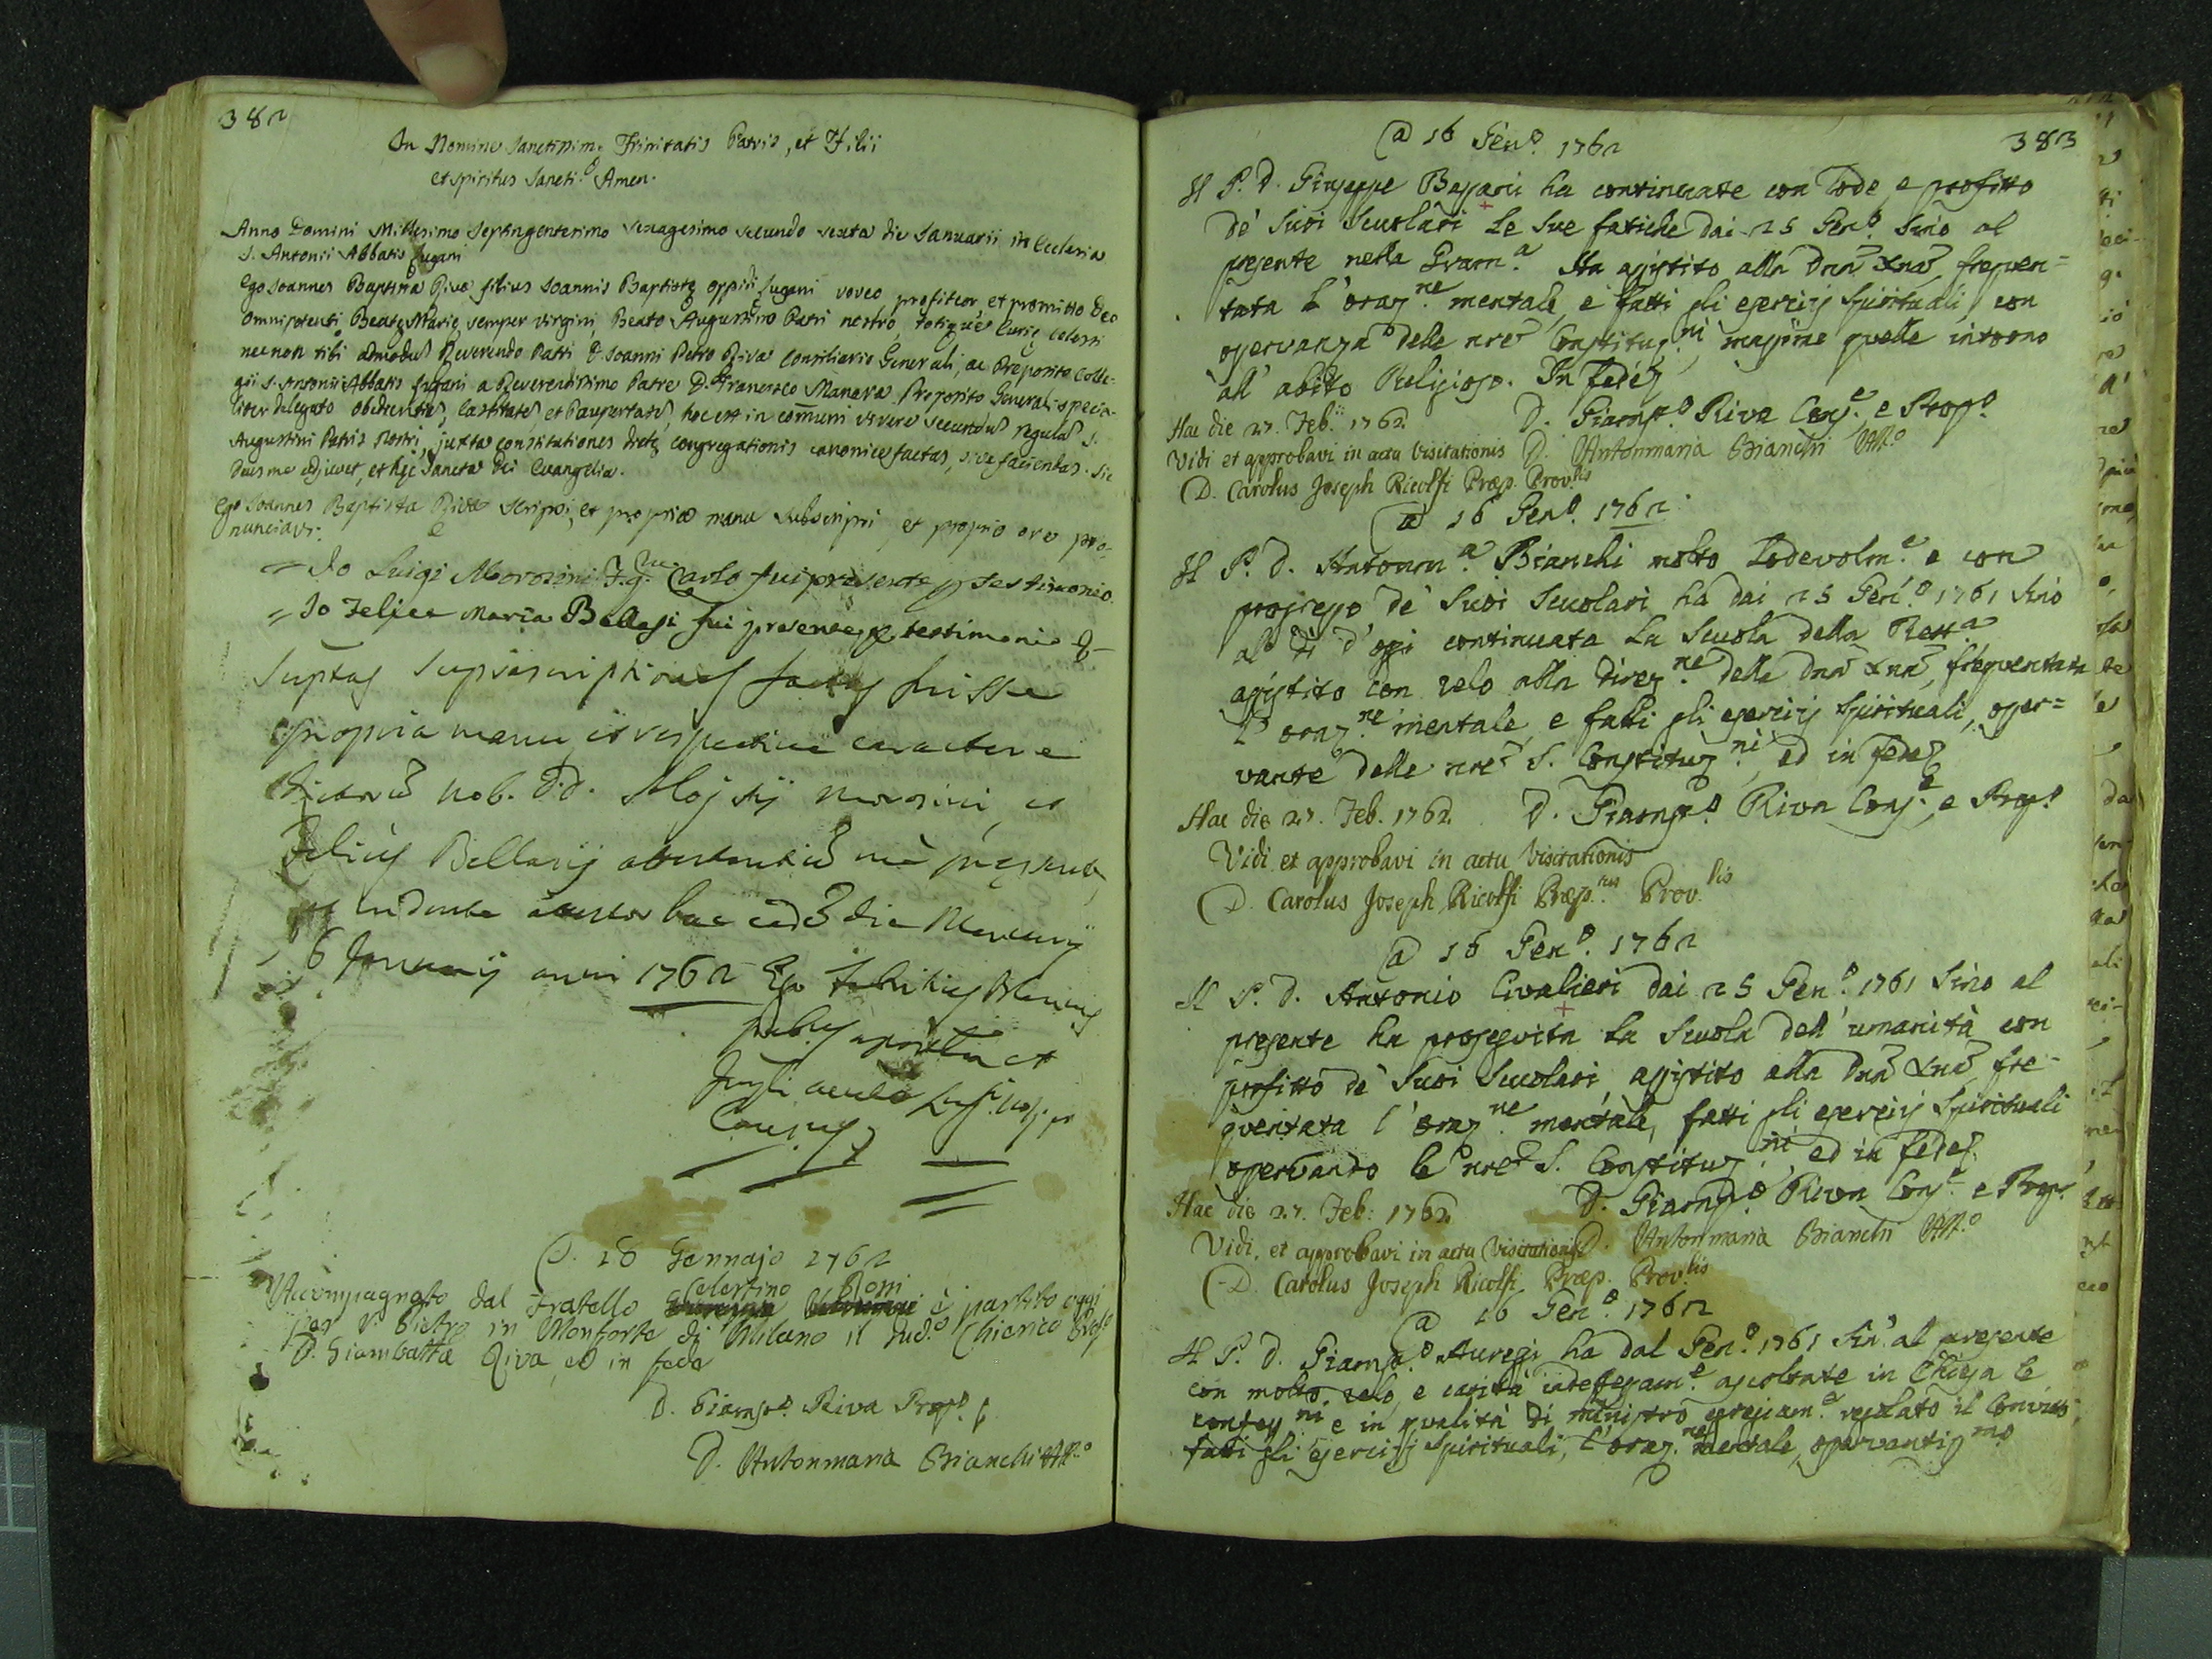 382
In Nomine Sanctissime Trinitatis Patris, et Filii
et Spiritus Sancti. Amen.
Anno Domini Millesimo Septingentesimo sexagesimo secundo sexta die Januarii in Ecclesia
S. Antonii Abbatis Lugani
Ego Joannes Baptista Riva filius Joannis Baptistę oppidi Lugani voveo, profiteor et promitto Deo
omnipotenti Beatę Marię semper virgini, Beato Augustino Patri nostro, totique Curię Celesti
necnon tibi admodum Reverendo Patri D. Joanni Petro Riva Consiliario Generali, ac Preposito Colle-
gii S. Antonii Abbatis Lugani a Reverendissimo Patre D. Francisco Manara Preposito Generali specia-
liter delegato obedientiam, Castitatem, et Paupertatem, hoc est in com̄uni vivere secundum regulam S.
Augustini Patris Nostri, juxta constitutiones dictę congregationis canonice factas, sive faciendas. Sic
Deus me adjuvet, et hęc Sancta Dei Evangelia.
Ego Joannes Baptista Riva scripsi, et propria manu subscripsi, et proprio ore pro-
nunciavi.
= Io Luigi Morosini Fig. Carlo fui presente p testimonio
= Io Felice Maria Bellasi fui presente p testimonio
Supta suprascriptiones factas fuisse
propria manu, et respective caractere
nob. D.D. Aloysij Morosini, et
Felicis Bellasij me presente,
et vidente hac eadem die Mercurij
6 Januarij anni 1762 Ego
@ 18 Gennajo 1762
Celestino Doni
Accompagnato dal Fratello è partito oggi
per S. Pietro in Monforte di Milano il sud.o Chierico Prof.o
D. Giambattā Riva, ed in fede
D. Giampo. Riva Prep.o
D. Antonmaria Bianchi Att.o
383
@ 16 Gen.o 1762
Il P. D. Giuseppe Bassanii ha continuate con lode, e profitto
de' suoi Scuolari le sue fatiche dai 25 Gen.o sino al
presente nella Gram.a Ha assistito alla Dnā Xnā, frequen=
tata l'oraz.ne mentale, e fatti gli esercizj spirituali, con
osservanza delle nrē Constituz.ni massime quelle intorno
all'abito Religioso. In fede
Hac die 27. Feb. 1762 D. Giamp.o Riva Cons.e e Prep.o
Vidi et approbavi in actu Visitationis D. Antonmaria Bianchi Att.o
D. Carolus Joseph Ricolfi Præp. Prov.lis
@ 16 Gen.o 1762
Il P. D. Antonm.a Bianchi molto lodevolm.e e con
progresso de' suoi Scuolari ha dai 25 Gen.o 1761 sino
al dì d'ogi continuata la Scuola della Rett.a
assistito con zelo alla direz.ne della Dnā Xnā, frequentata
l'oraz.ne mentale, e fatti gli esercizj spirituali, osser=
vante delle nrē S. Constituz.ni, ed in fede
Hac die 27. Feb. 1762 D. Giamp.o Riva Cons.e e Prep.o
Vidi et approbavi in actu Visitationis
D. Carolus Joseph Ricolfi Præp.tus Prov.lis
@ 16 Gen.o 1762
Il P. D. Antonio Civalieri dai 25 Gen.o 1761 sino al
presente ha proseguita la Scuola dell'umanità con
profitto de' suoi Scuolari, assistito alla Dnā Xnā, fre-
quentata l'oraz.ne mentale, fatti gli esercizj spirituali
osservando le nrē S. Constituz.ni, ed in fede
Hac die 27. Feb: 1762 D. Giamp.o Riva Cons.e e Prep.o
Vidi, et approbavi in actu Visitationis D. Antonmaria Bianchi Att.o
D. Carolus Joseph Ricolfi Præp. Prov.lis
@ 16 Gen.o 1762
Il P. D. Giamp.o Auregi ha dal Gen.o 1761 sin' al presente
con molto zelo, e carità indefessam.e ascoltate in Chiesa le
confess.ni e in qualità di ministro egregiam.e regolato il Convitto,
fatti gli esercizj spirituali, l'oraz.ne mentale, osservantiss.mo